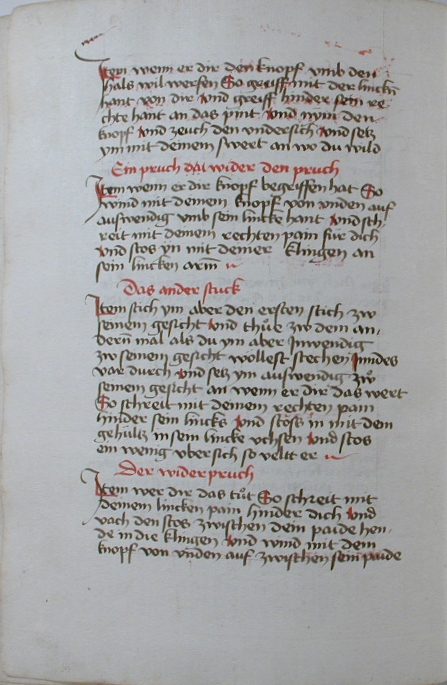 Item wenn er dir den knopf vmb den
hals wil werfen So greiff mit der lincken
hant von dir vnd greiff hinder sein re
chte hant an das pint vnd nym den
knopf vnd zeuch den vndersich vnd setz
ym mit deinem swert an wo du wild
Ein pruch dat wider den pruch
Item wenn er dir knopf begriffen hat So
wind mit deinem knopf von vnden auf
auswendig vmb sein lincke hant vnd sch
reit mit deinem rechten pain für dich
vnd stos yn mit deiner klingen an
sein lincken arm
Das ander stuck
Item stich ym aber den ersten stich zw
seinem gesicht vnd thue zw dem an
dern mal als du ym aber Inwendig
zw seinem gesicht wollest stechen Inndes
var durch vnd setz ym auswendig zw
seinem gesicht an wenn er dir das wert
So schreit mit deinem rechten pain
hinder sein lincks vnd stoss in mit dem
gehültz in sein lincke vchsen vnd stos
ein wenig vbersich so velt er
Der widerpruch
Item wer dir das tut So schreit mit
deinem lincken pain hinder dich vnd
vach den stos zwischen dein paide hen
de in die klingen vnd wind mit dem
knopf von vnden auf zwischen sein paide